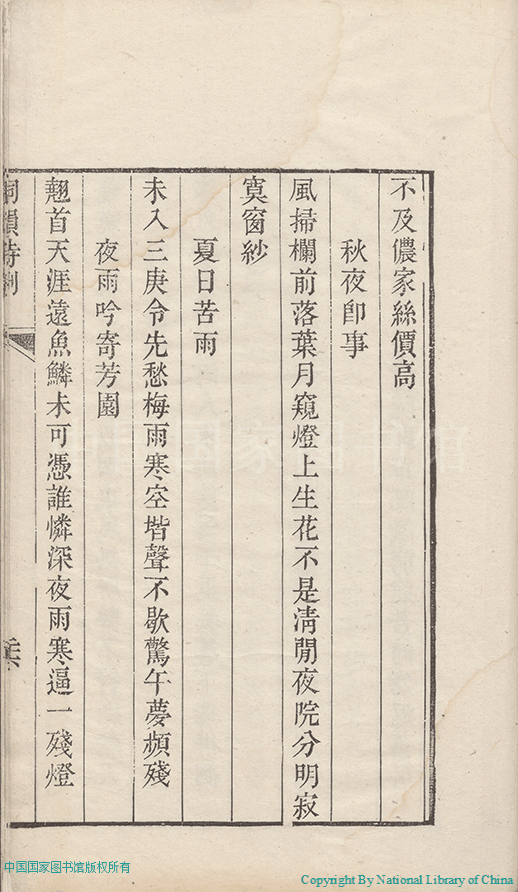 不及儂家絲價高
秋夜卽事
風掃欄前落葉月窺燈上生花不是淸閒夜院分明寂
寞窗紗
夏日苦雨
未入三庚令先愁梅雨寒空堦聲不歇驚午夢頻殘
夜雨吟寄芳園
翹首天涯遠魚鱗未可憑誰憐深夜雨寒逼一殘燈
中国国家图书馆版权所有
Copyright By National Library of China